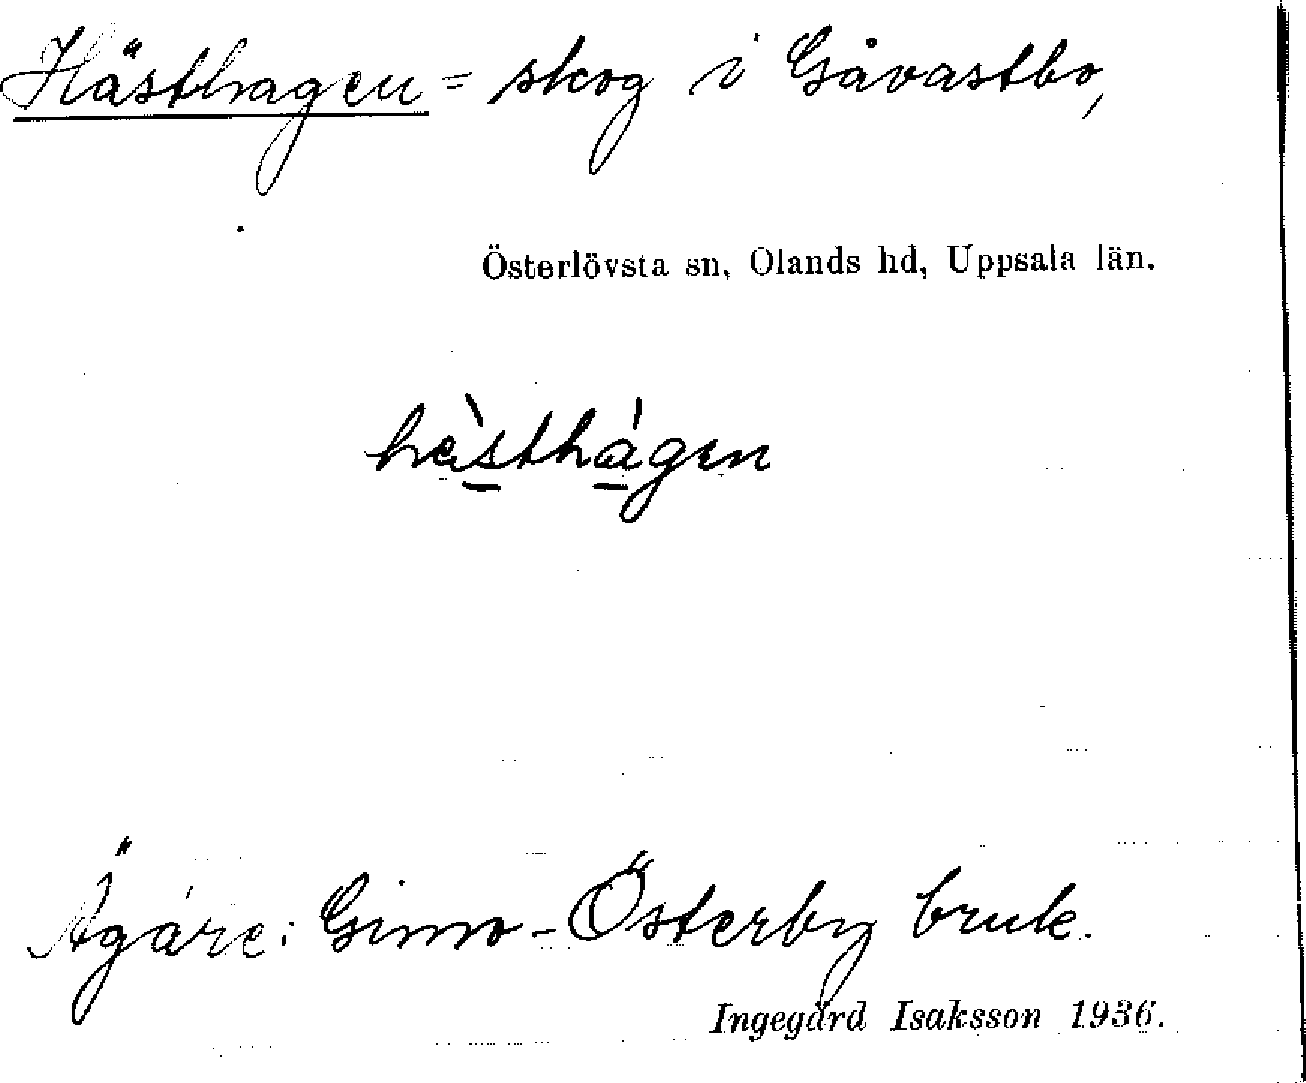 Hästhagen = skog i Gåvastbo,
Österlövsta sn, Olands hd, Uppsala län.
hà̱sthá̱gen
Ägare: Gimo-Österby bruk.
Ingegärd Isaksson 1936.